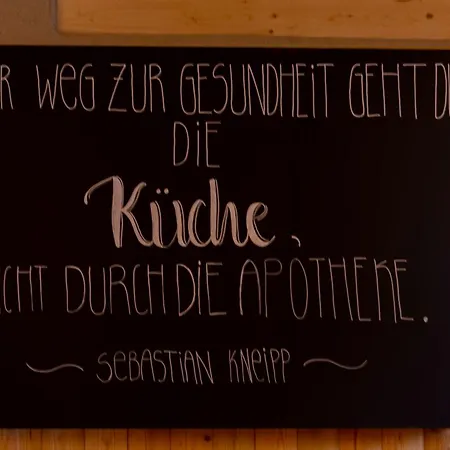 R WEG ZUR GESUNDHEIT GEHT D
DIE
Küche,
CHT DURCH DIE APOTHEKE.
~ SEBASTIAN KNEIPP ~